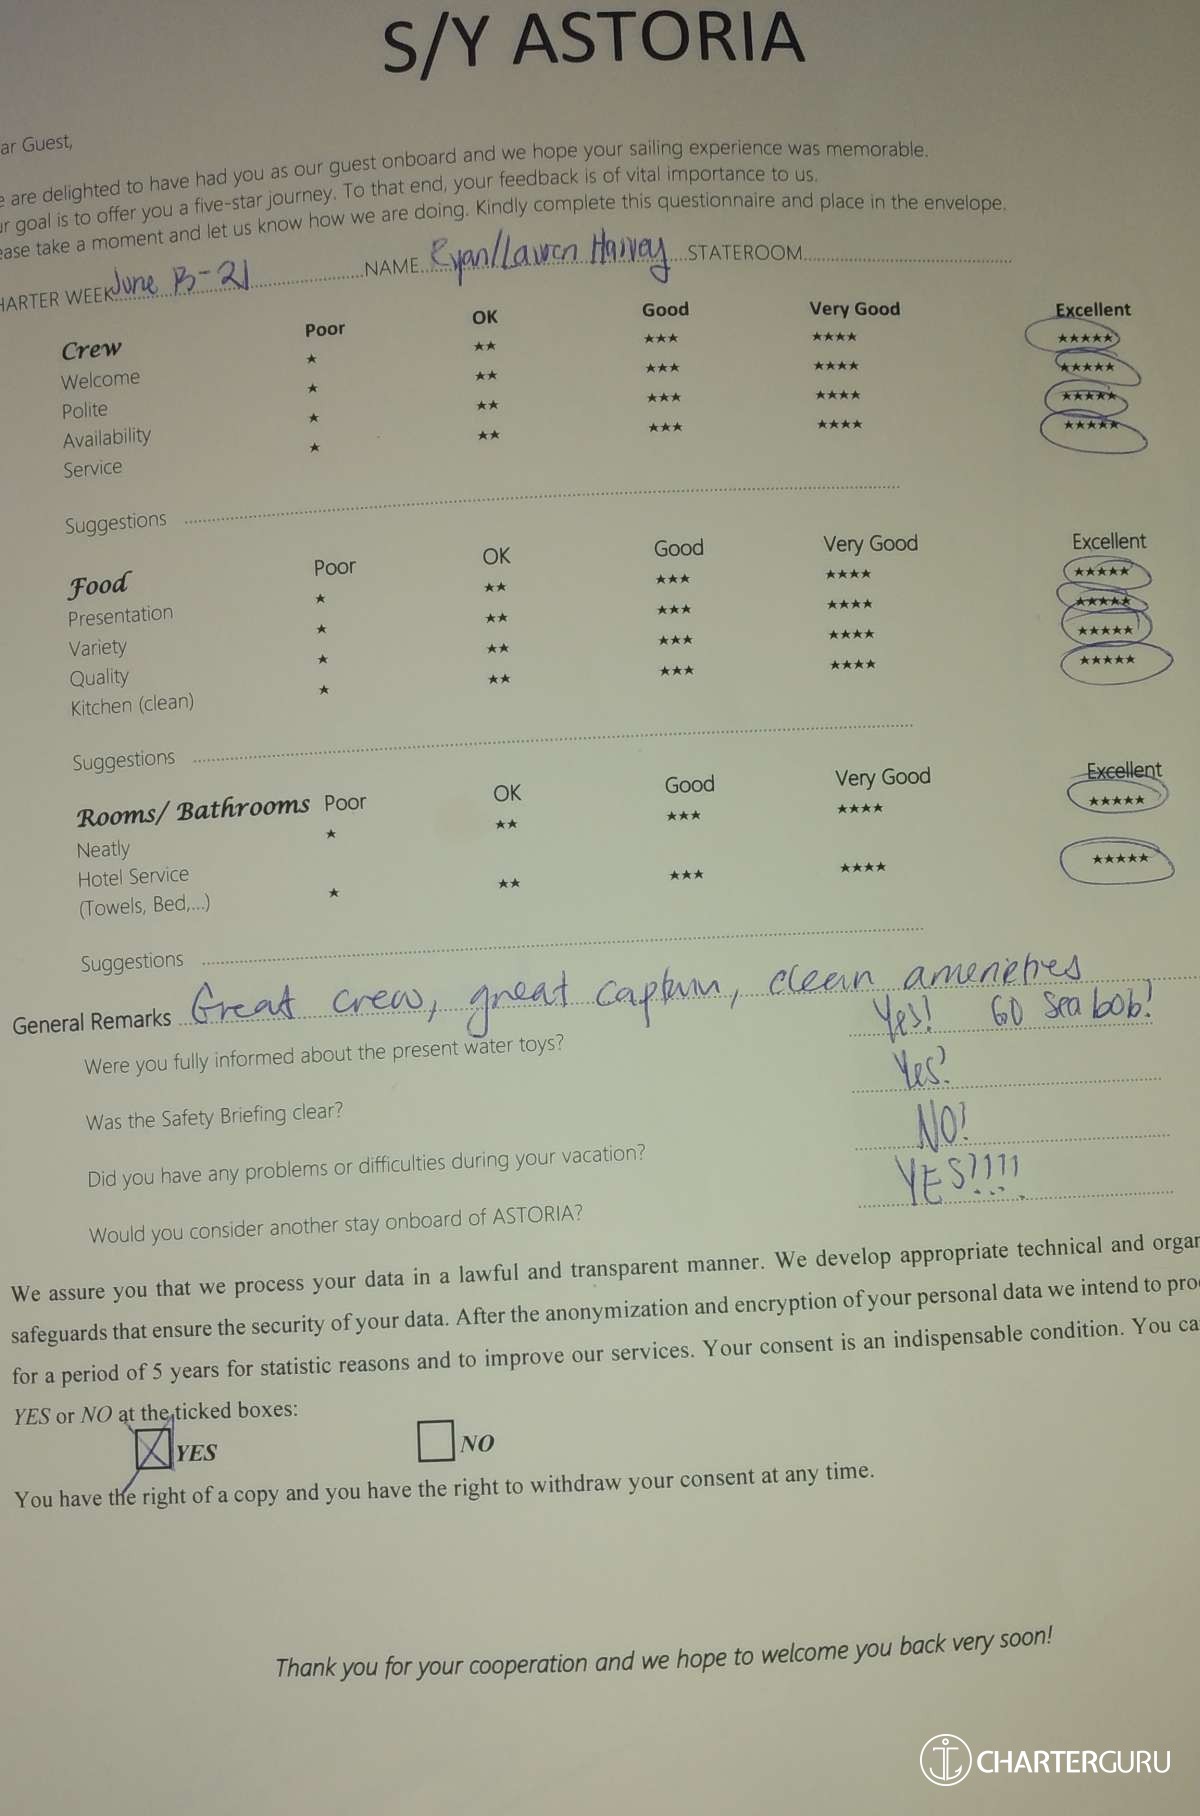 S/Y ASTORIA
ar Guest,
e are delighted to have had you as our guest onboard and we hope your sailing experience was memorable.
ur goal is to offer you a five-star journey. To that end, your feedback is of vital importance to us.
ease take a moment and let us know how we are doing. Kindly complete this questionnaire and place in the envelope.
HARTER WEEK June 15-21 NAME Ryan/Lauren Harvey STATEROOM
Crew Poor OK Good Very Good Excellent
Welcome ★ ★★ ★★★ ★★★★ ★★★★★
Polite ★ ★★ ★★★ ★★★★ ★★★★★
Availability ★ ★★ ★★★ ★★★★ ★★★★★
Service ★ ★★ ★★★ ★★★★ ★★★★★
Suggestions
Food Poor OK Good Very Good Excellent
Presentation ★ ★★ ★★★ ★★★★ ★★★★★
Variety ★ ★★ ★★★ ★★★★ ★★★★★
Quality ★ ★★ ★★★ ★★★★ ★★★★★
Kitchen (clean) ★ ★★ ★★★ ★★★★ ★★★★★
Suggestions
Rooms/ Bathrooms Poor OK Good Very Good Excellent
Neatly ★ ★★ ★★★ ★★★★ ★★★★★
Hotel Service
(Towels, Bed,...) ★ ★★ ★★★ ★★★★ ★★★★★
Suggestions
General Remarks Great crew, great captain, clean amenities
Were you fully informed about the present water toys? Yes! GO Sea bob!
Was the Safety Briefing clear? Yes!
Did you have any problems or difficulties during your vacation? NO!
Would you consider another stay onboard of ASTORIA? YES!!!!
We assure you that we process your data in a lawful and transparent manner. We develop appropriate technical and organ
safeguards that ensure the security of your data. After the anonymization and encryption of your personal data we intend to pro
for a period of 5 years for statistic reasons and to improve our services. Your consent is an indispensable condition. You ca
YES or NO at the ticked boxes:
YES NO
You have the right of a copy and you have the right to withdraw your consent at any time.
Thank you for your cooperation and we hope to welcome you back very soon!
CHARTERGURU